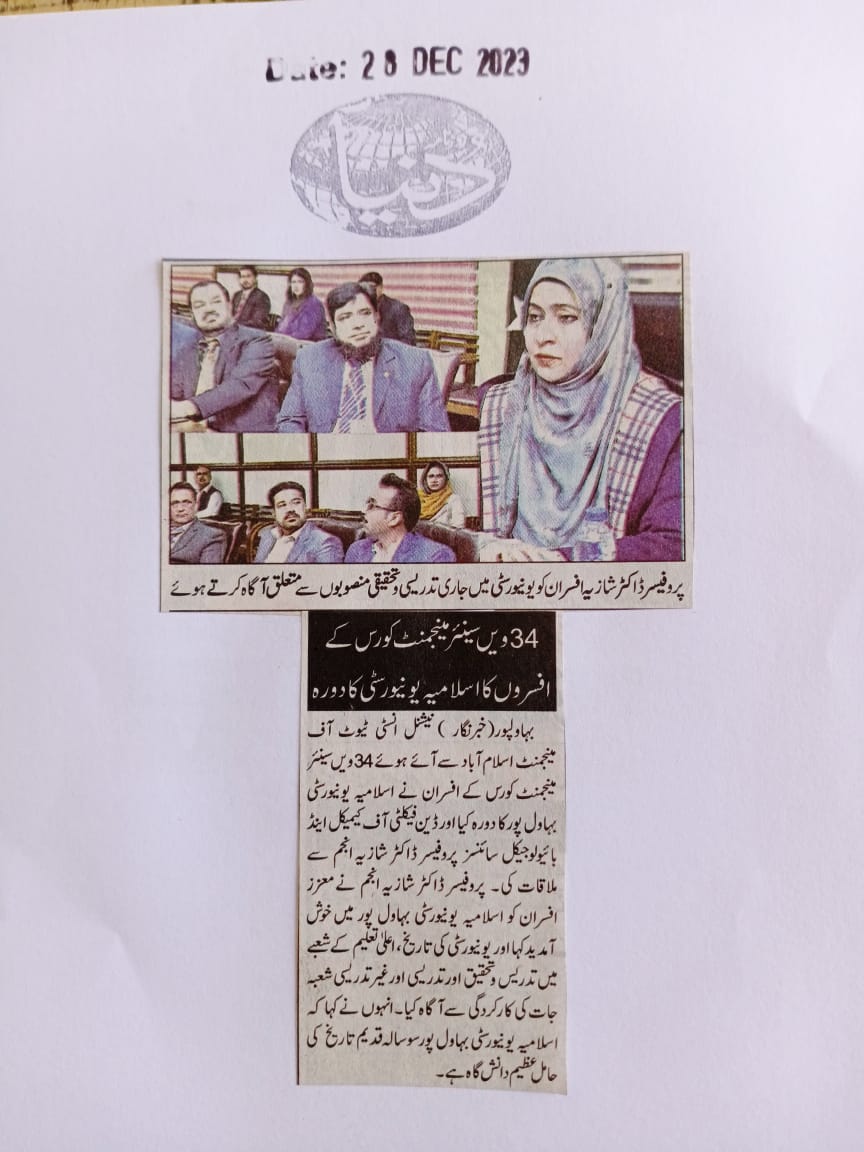 Date: 28 DEC 2023
دنیا
پروفیسر ڈاکٹر شازیہ افسران کو یونیورسٹی میں جاری تدریسی و تحقیقی منصوبوں سے متعلق آگاہ کرتے ہوئے
34 ویں سینئر مینجمنٹ کورس کے
افسروں کا اسلامیہ یونیورسٹی کا دورہ
بہاولپور(خبرنگار) نیشنل انسٹی ٹیوٹ آف
مینجمنٹ اسلام آباد سے آئے ہوئے 34 ویں سینئر
مینجمنٹ کورس کے افسران نے اسلامیہ یونیورسٹی
بہاول پور کا دورہ کیا اور ڈین فیکلٹی آف کیمیکل اینڈ
بائیولوجیکل سائنسز پروفیسر ڈاکٹر شازیہ انجم سے
ملاقات کی۔ پروفیسر ڈاکٹر شازیہ انجم نے معزز
افسران کو اسلامیہ یونیورسٹی بہاول پور میں خوش
آمدید کہا اور یونیورسٹی کی تاریخ، اعلیٰ تعلیم کے شعبے
میں تدریس و تحقیق اور تدریسی اور غیر تدریسی شعبہ
جات کی کارکردگی سے آگاہ کیا۔ انہوں نے کہا کہ
اسلامیہ یونیورسٹی بہاول پور سو سالہ قدیم تاریخ کی
حامل عظیم دانش گاہ ہے۔